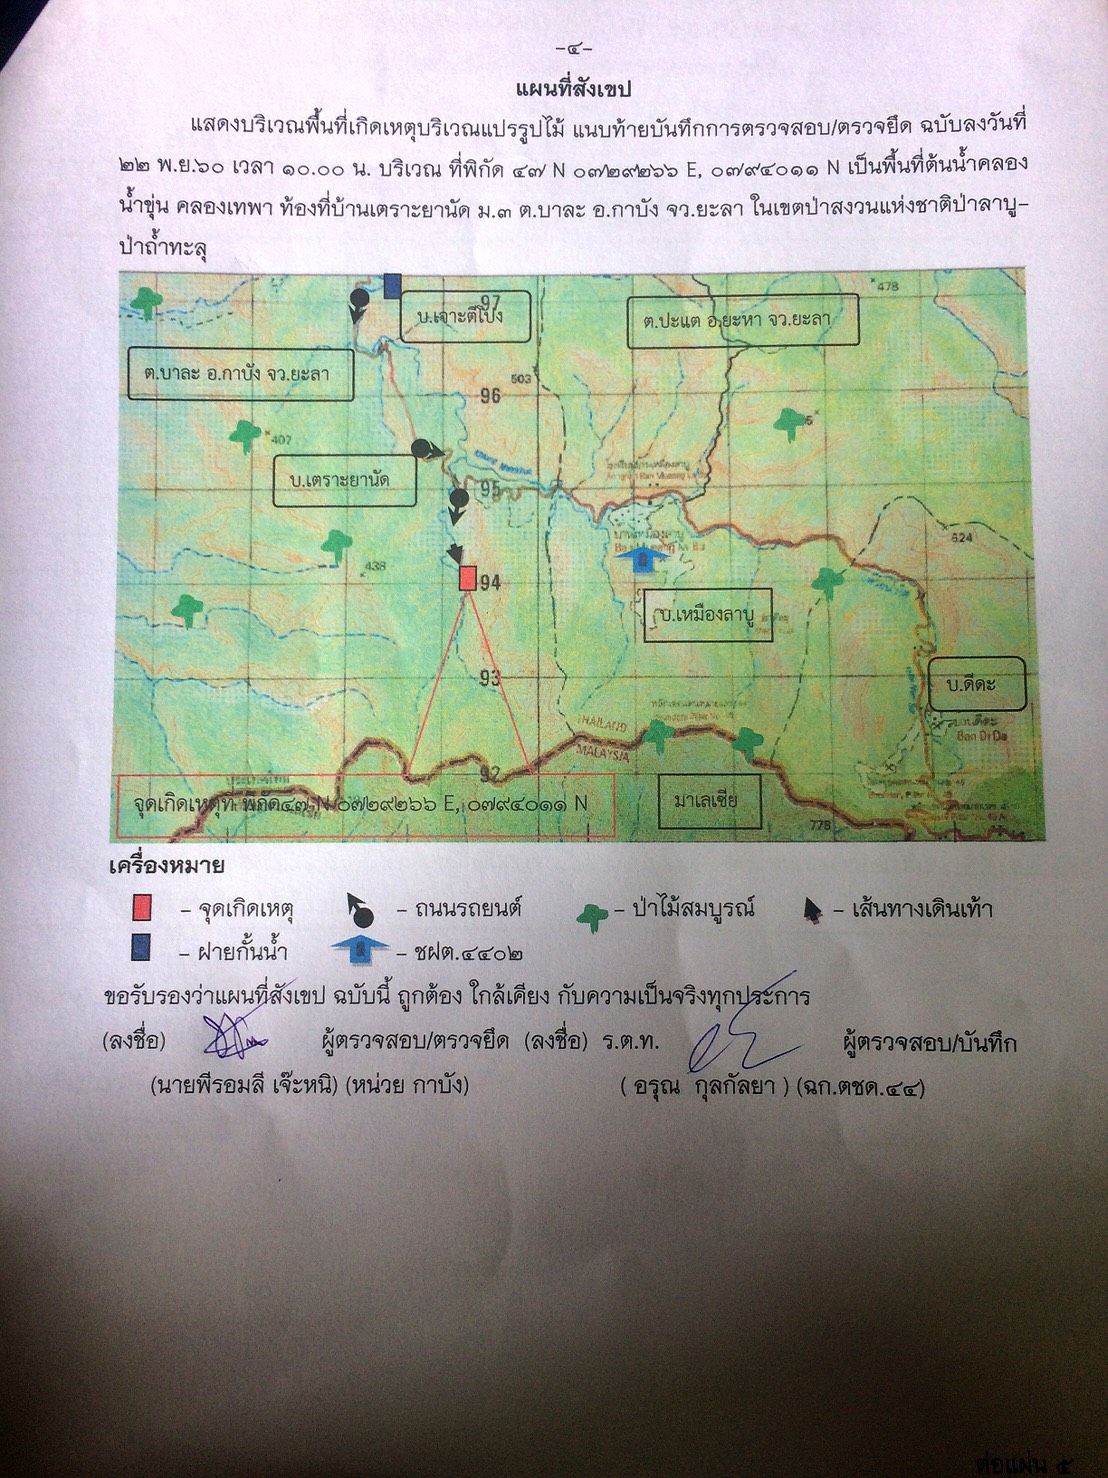 -๔-
แผนที่สังเขป
แสดงบริเวณพื้นที่เกิดเหตุบริเวณแปรรูปไม้ แนบท้ายบันทึกการตรวจสอบ/ตรวจยึด ฉบับลงวันที่
๒๒ พ.ย.๖๐ เวลา ๑๐.๐๐ น. บริเวณ ที่พิกัด ๔๗ N ๐๗๒๙๒๖๖ E, ๐๗๙๔๐๑๑ N เป็นพื้นที่ต้นน้ำคลอง
น้ำขุ่น คลองเทพา ท้องที่บ้านเตราะยานัด ม.๓ ต.บาละ อ.กาบัง จว.ยะลา ในเขตป่าสงวนแห่งชาติป่าลาบู-
ป่าถ้ำทะลุ
478
97
บ.เจาะตีโบ๋ง
ต.ปะแต อ.ยะหา จว.ยะลา
ต.บาละ อ.กาบัง จว.ยะลา
503
96
407
บ.เตราะยานัด
95
624
438
94
บ.เหมืองลาบู
93
บ.ดีดะ
THAILAND
MALAYSIA
Ban Di Da
92
จุดเกิดเหตุที่ พิกัด๔๗ N ๐๗๒๙๒๖๖ E, ๐๗๙๔๐๑๑ N
มาเลเซีย
778
เครื่องหมาย
- จุดเกิดเหตุ - ถนนรถยนต์ - ป่าไม้สมบูรณ์ - เส้นทางเดินเท้า
- ฝายกั้นน้ำ - ชฝต.๔๔๐๒
ขอรับรองว่าแผนที่สังเขป ฉบับนี้ ถูกต้อง ใกล้เคียง กับความเป็นจริงทุกประการ
(ลงชื่อ) ผู้ตรวจสอบ/ตรวจยึด (ลงชื่อ) ร.ต.ท. ผู้ตรวจสอบ/บันทึก
(นายพีรอมลี เจ๊ะหนิ) (หน่วย กาบัง) ( อรุณ กุลกัลยา ) (ฉก.ตชด.๔๔)
ต่อแผ่น ๕